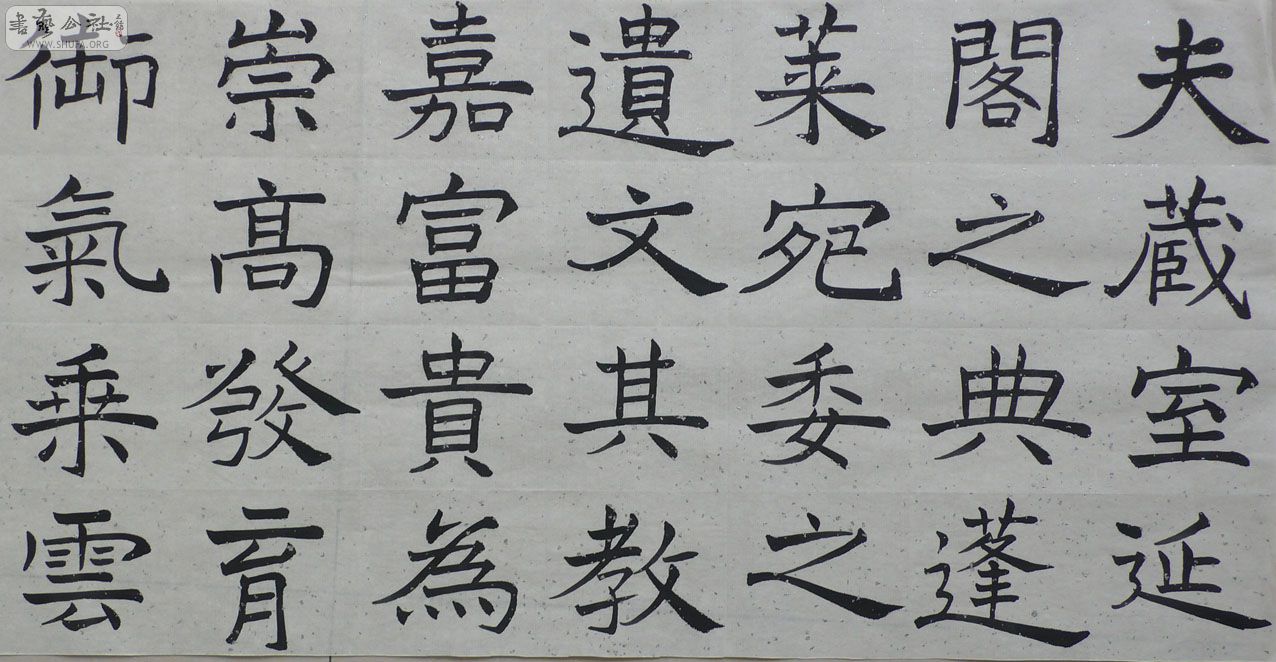 夫蔵室延
閣之典蓬
莱宛委之
遺文其教
嘉富貴為
崇髙發育
御氣乗雲
書藝公社
WWW.SHUFA.ORG